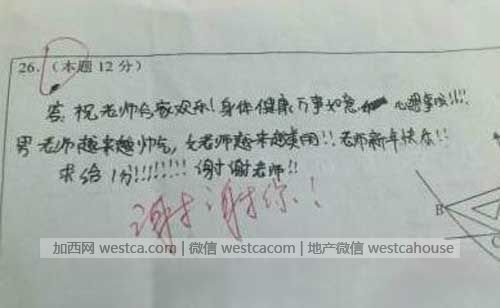 26.(本题12分)
答:祝老师合家欢乐!身体健康,万事如意 心想事成!!!!
男老师越来越帅气,女老师越来越美丽!!老师新年快乐!!
求给1分!!!!!!!!谢谢老师!!
谢谢你!!
B
C
加西网 westca.com | 微信 westcacom | 地产微信 westcahouse